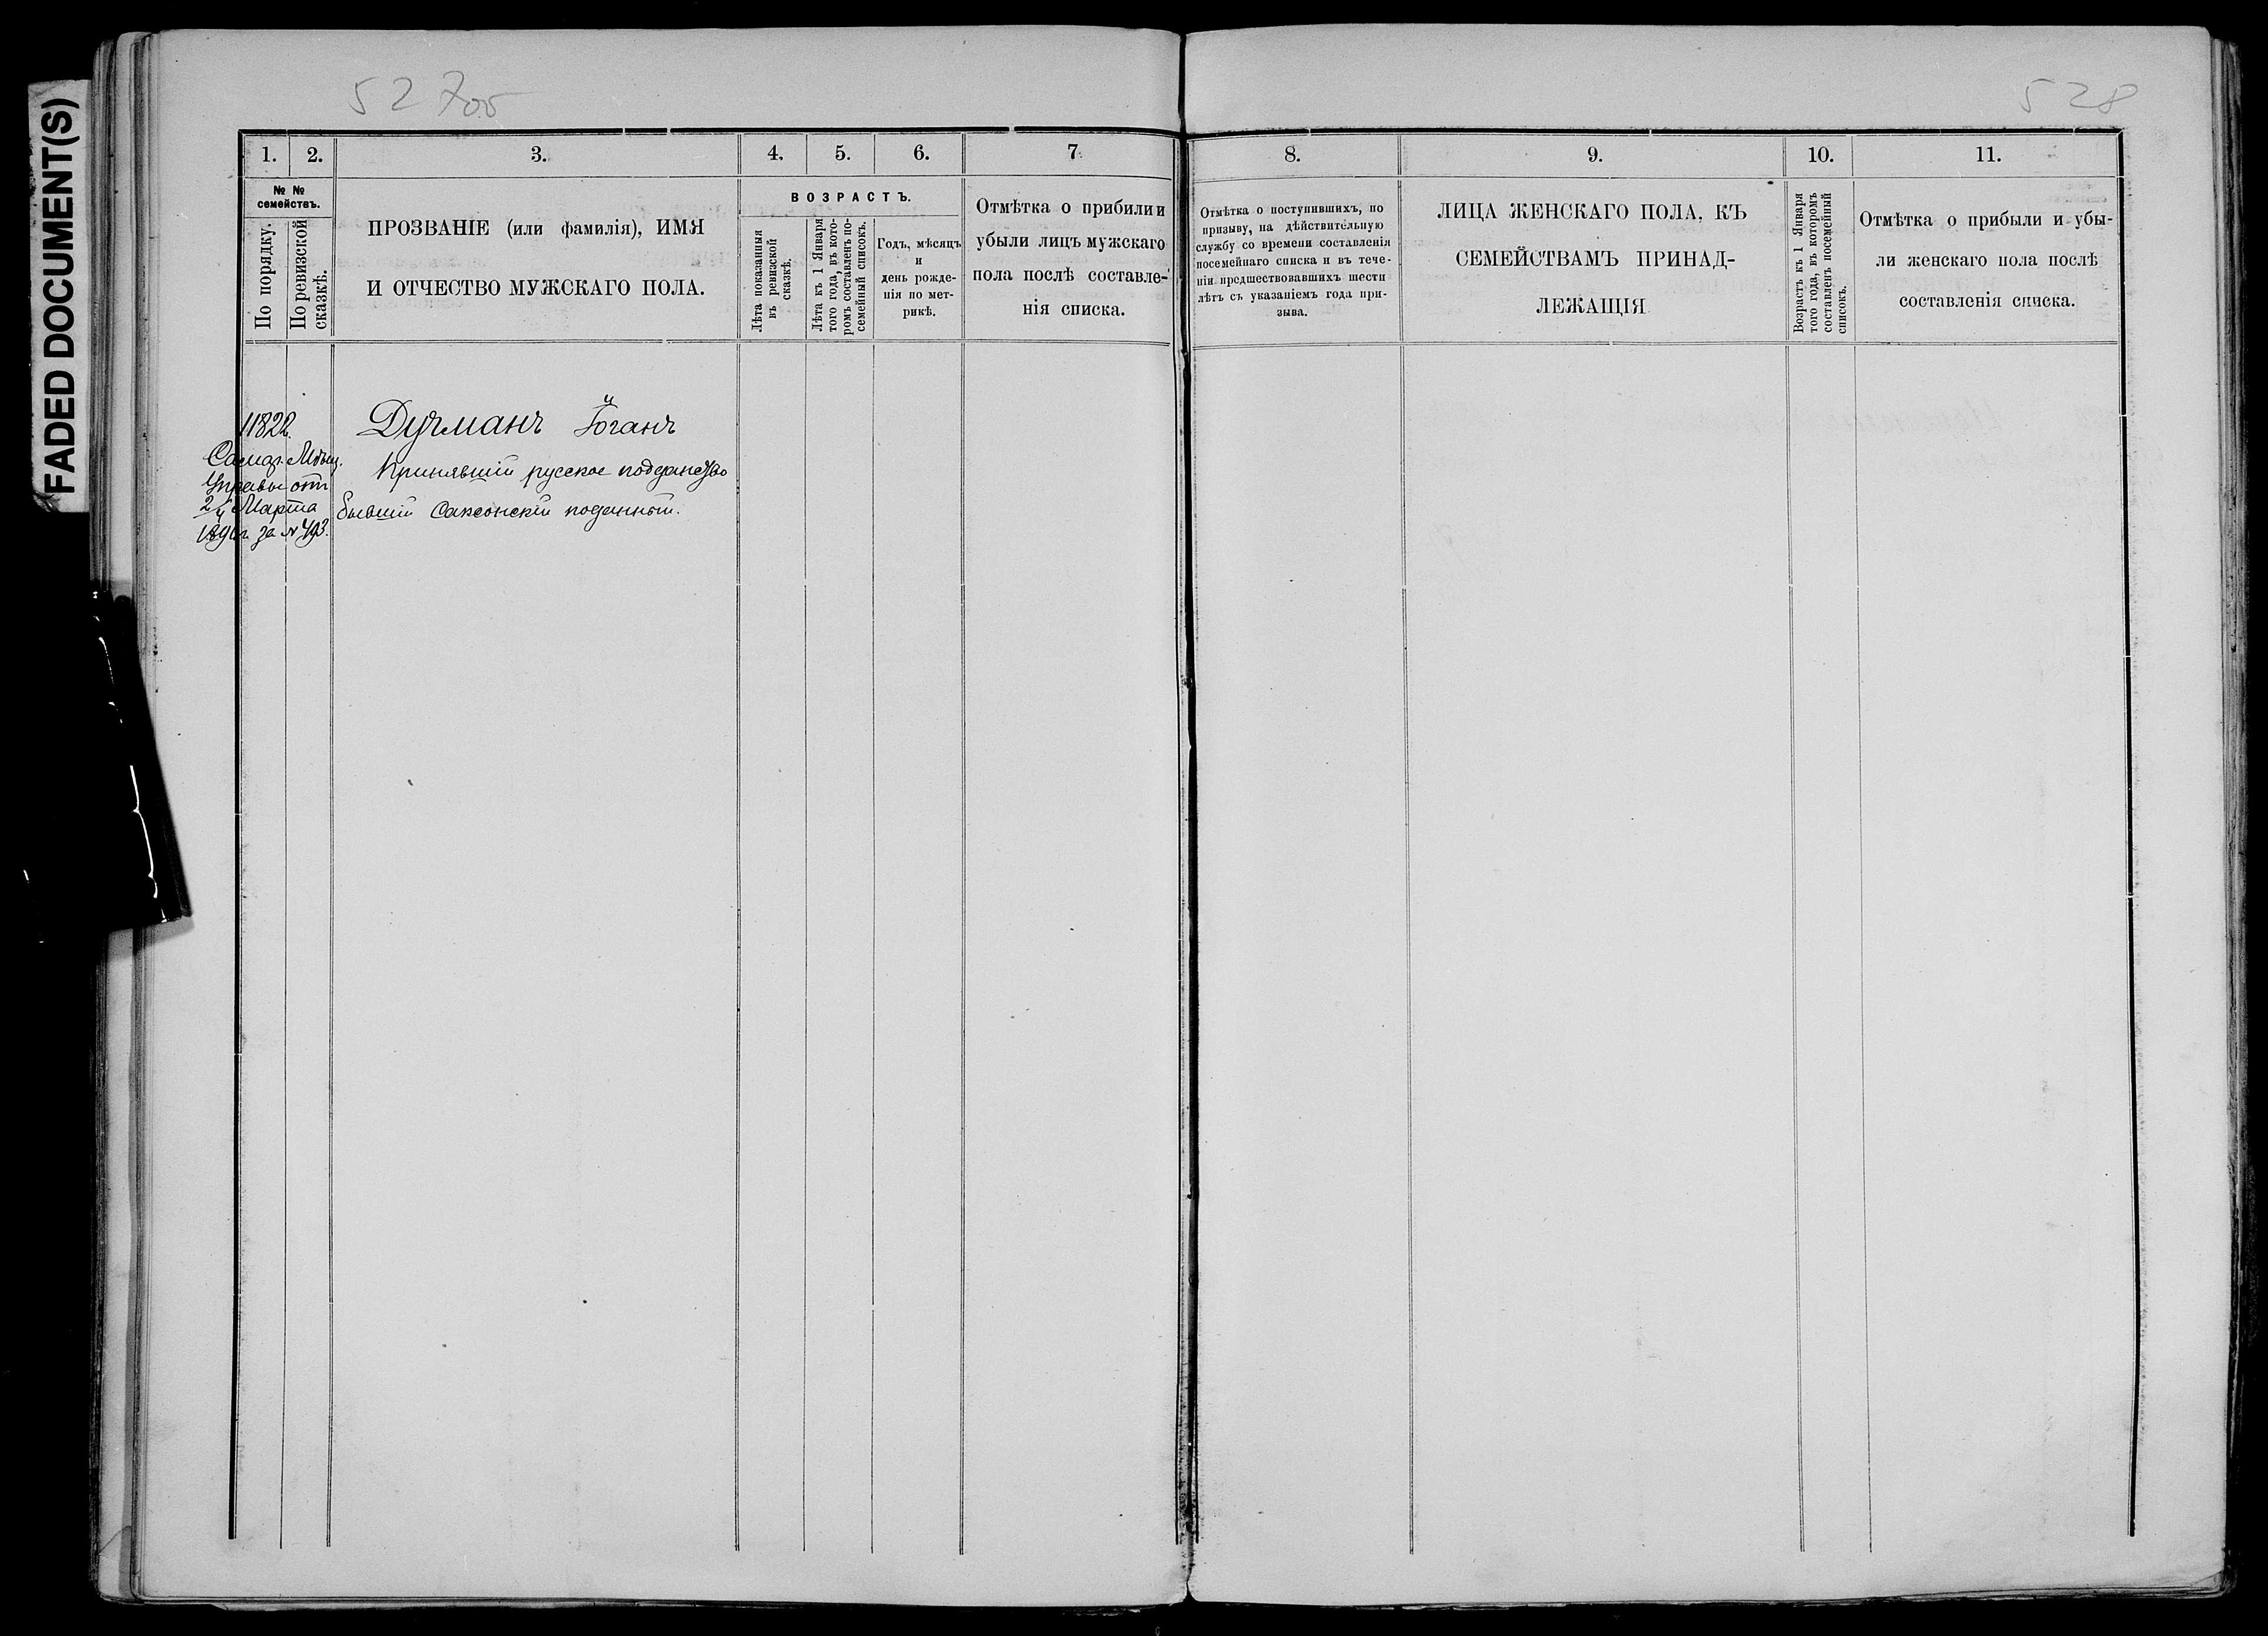 FADED DOCUMENT(S)
527об
528
1. 2. 3. 4. 5. 6. 7.
№ № семействъ.
По порядку.
По ревизской сказкѣ.
ПРОЗВАНІЕ (или фамилія), ИМЯ
И ОТЧЕСТВО МУЖСКАГО ПОЛА.
ВОЗРАСТЪ.
Лѣта показанныя
въ ревизской
сказкѣ.
Лѣта къ 1 Января
того года, въ кото-
ромъ составленъ по-
семейный списокъ.
Годъ, мѣсяцъ
и
день рожде-
нія по мет-
рикѣ.
Отмѣтка о прибили и
убыли лицъ мужскаго
пола послѣ составле-
нія списка.
8. 9. 10. 11.
Отмѣтка о поступившихъ, по
призыву, на дѣйствительную
службу со времени составленія
посемейнаго списка и въ тече-
ніи предшествовавшихъ шести
лѣтъ съ указаніемъ года при-
зыва.
ЛИЦА ЖЕНСКАГО ПОЛА, КЪ
СЕМЕЙСТВАМЪ ПРИНАД-
ЛЕЖАЩІЯ
Возрастъ къ 1 Января
того года, въ которомъ
составленъ посемейный
списокъ.
Отмѣтка о прибыли и убы-
ли женскаго пола послѣ
составленія списка.
11822.
Самар. Мѣщ.
Управы отъ
Марта
за № 493.
Дучманъ Іоганъ
Принявшій русское подданство
бывшій Саксонскій поданный.